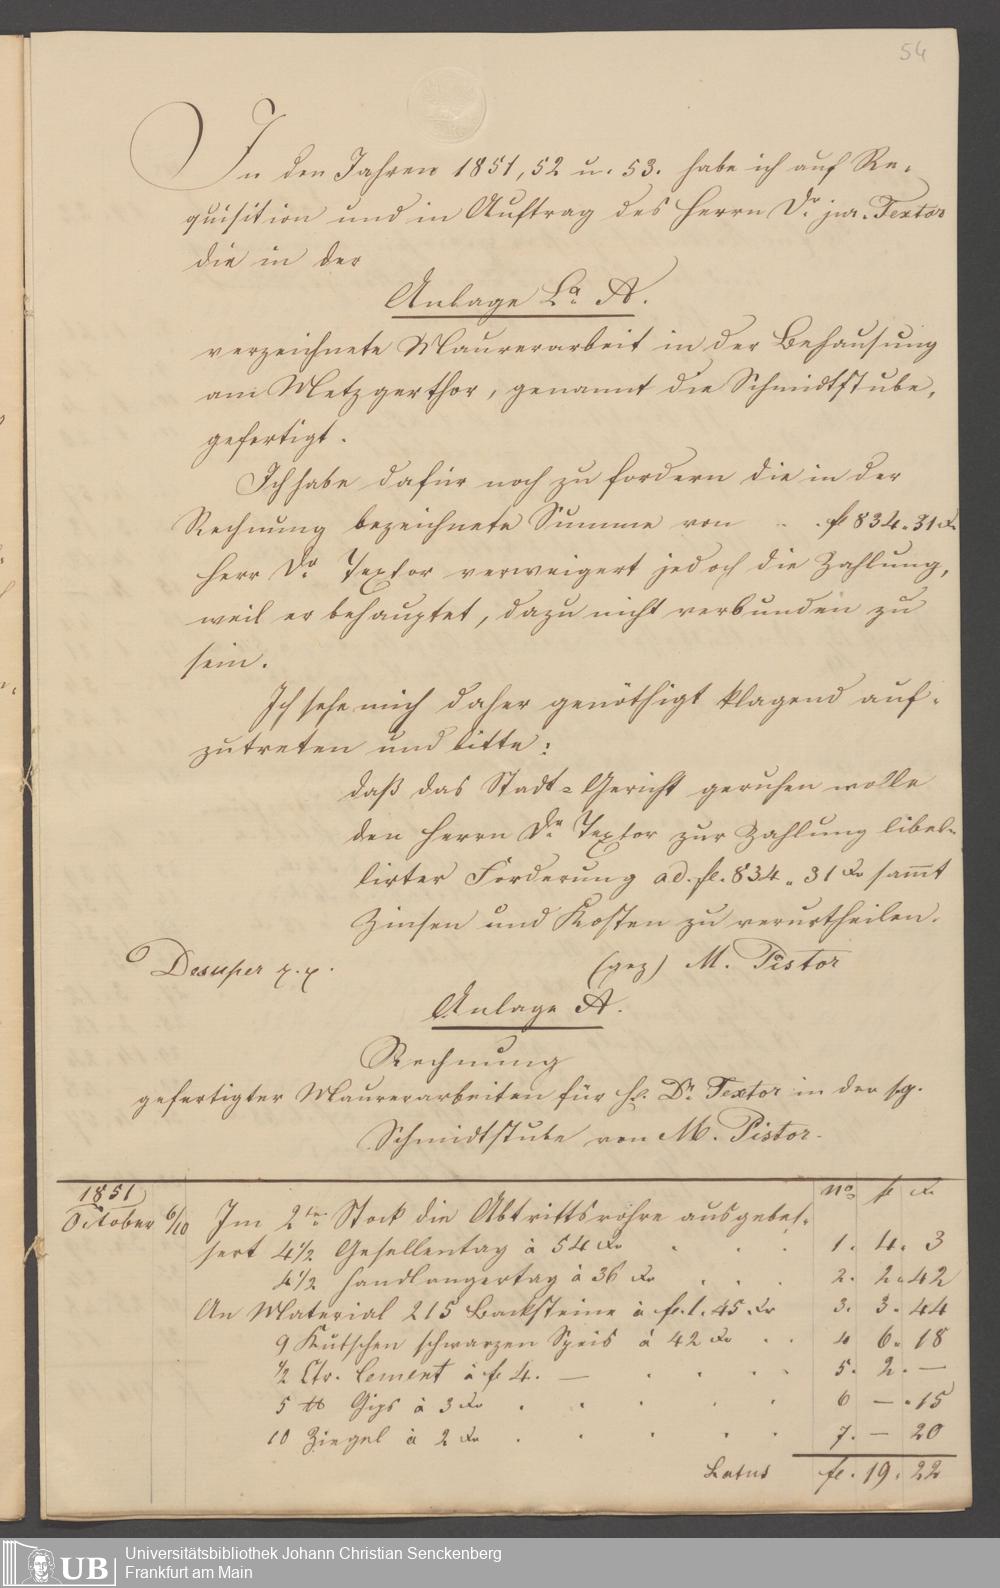 54
In den Jahren 1851, 52 u. 53. habe ich auf Re-
quisition und in Auftrag des Herrn Dr. jur. Textor
die in der
Anlage La A.
verzeichnete Maurerarbeit in der Behausung
am Metzgerthor, genannt die Schmidtstube,
gefertigt.
Ich habe dafür noch zu fordern die in der
Rechnung bezeichnete Summe von . . fl 834. 31 Xr
Herr Dr. Textor verweigert jedoch die Zahlung,
weil er behauptet, dazu nicht verbunden zu
sein.
Ich sehe mich daher genöthigt klagend auf-
zutreten und bitte:
daß das Stadt-Gericht geruhen wolle
den Herrn Dr. Textor zur Zahlung libel-
lirter Forderung ad. fl. 834 „ 31 Xr sam̅t
Zinsen und Kosten zu verurtheilen.
Desuper p.p. (gez) M. Pistor
Anlage A.
Rechnung
gefertigter Maurerarbeiten für H. Dr. Textor in der sg.
Schmidtstube von M. Pistor.
1851 No. fl Xr
October 6/10 Im 2ten Stock die Abtrittsröhre ausgebes-
sert 4 1/2 Gesellentag à 54 Xr . . . 1. 4. 3
4 1/2 Handlangertag à 36 Xr . . . 2. 2. 42
An Material 215 Backsteine à fl. 1. 45 Xr 3. 3. 44
9 Kutschen schwarzen Speis à 42 Xr . . 4 6. 18
1/2 Ctr. Cement à fl 4. — . . . . 5. 2. —
5 ℔ Gips à 3 Xr . . . . . 6 — . 15
10 Ziegel à 2 Xr . . . . . 7. — 20
Latus fl. 19. 22
UB
Universitätsbibliothek Johann Christian Senckenberg
Frankfurt am Main